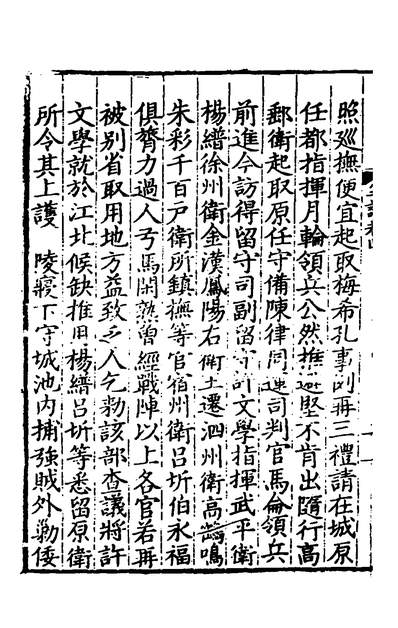 照巡撫便宜起取梅希孔事例再三禮請在城原
任都指揮月輪領兵公然推避堅不肯出隨行高
郵衛起取原任守備陳律同運司判官馬倫領兵
前進今訪得留守司副留守許文學指揮武平衛
楊縉徐州衛金漢鳳陽右衛王遷泗州衛高鵬鳴
朱彩千百戶衛所鎮撫等官宿州衛呂圻伯永福
俱膂力過人弓馬閑熟曾經戰陣以上各官若再
被別省取用地方益致乏人乞勑該部查議將許
文學就於江北候缺推用楊縉呂圻等悉留原衛
所令其上護 陵寢下守城池內捕強賊外勦倭